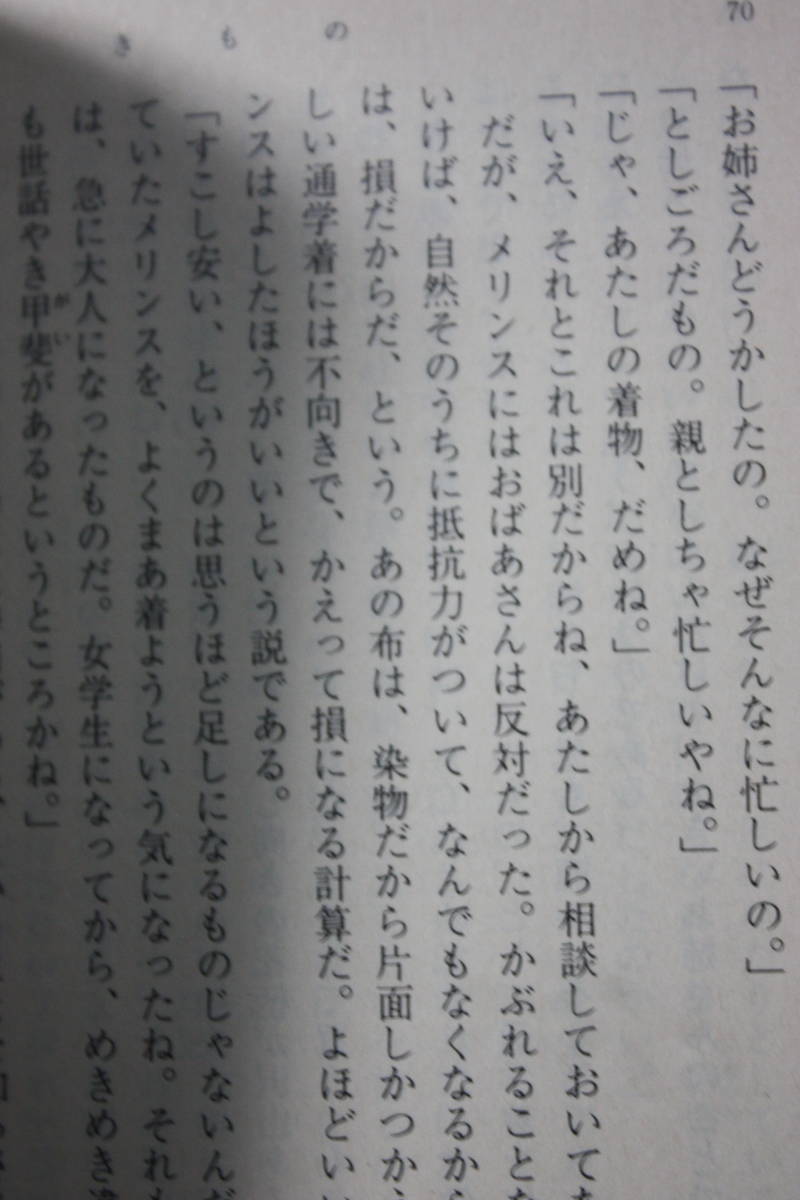 70
きもの
「お姉さんどうかしたの。なぜそんなに忙しいの。」
「としごろだもの。親としちゃ忙しいやね。」
「じゃ、あたしの着物、だめね。」
「いえ、それとこれは別だからね、あたしから相談しておいて
だが、メリンスにはおばあさんは反対だった。かぶれること
いけば、自然そのうちに抵抗力がついて、なんでもなくなるから
は、損だからだ、という。あの布は、染物だから片面しかつか
しい通学着には不向きで、かえって損になる計算だ。よほどい
ンスはよしたほうがいいという説である。
「すこし安い、というのは思うほど足しになるものじゃないんだ
ていたメリンスを、よくまあ着ようという気になったね。それも
は、急に大人になったものだ。女学生になってから、めきめき
も世話やき甲斐があるというところかね。」
がい